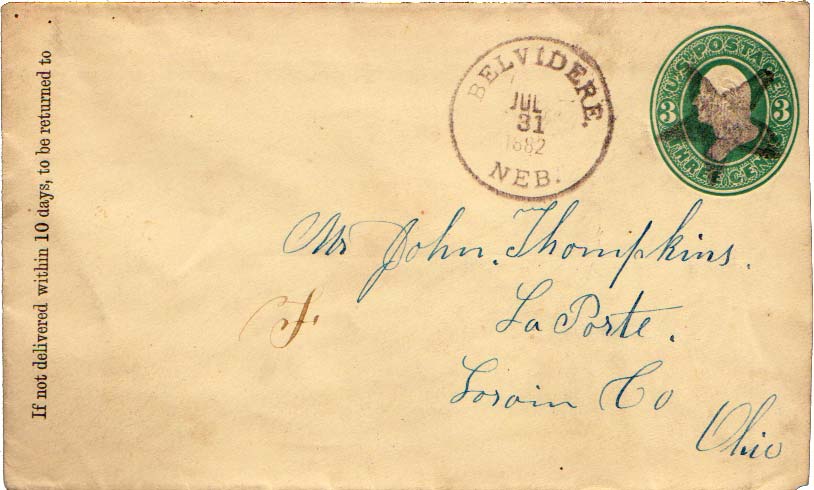 If not delivered within 10 days, to be returned to
BELVIDERE.
JUL
31
1882
NEB.
U.S. POSTAGE
3 3
THREE CENTS
Mr John. Thompkins.
F
La Porte.
Lorain Co
Ohio